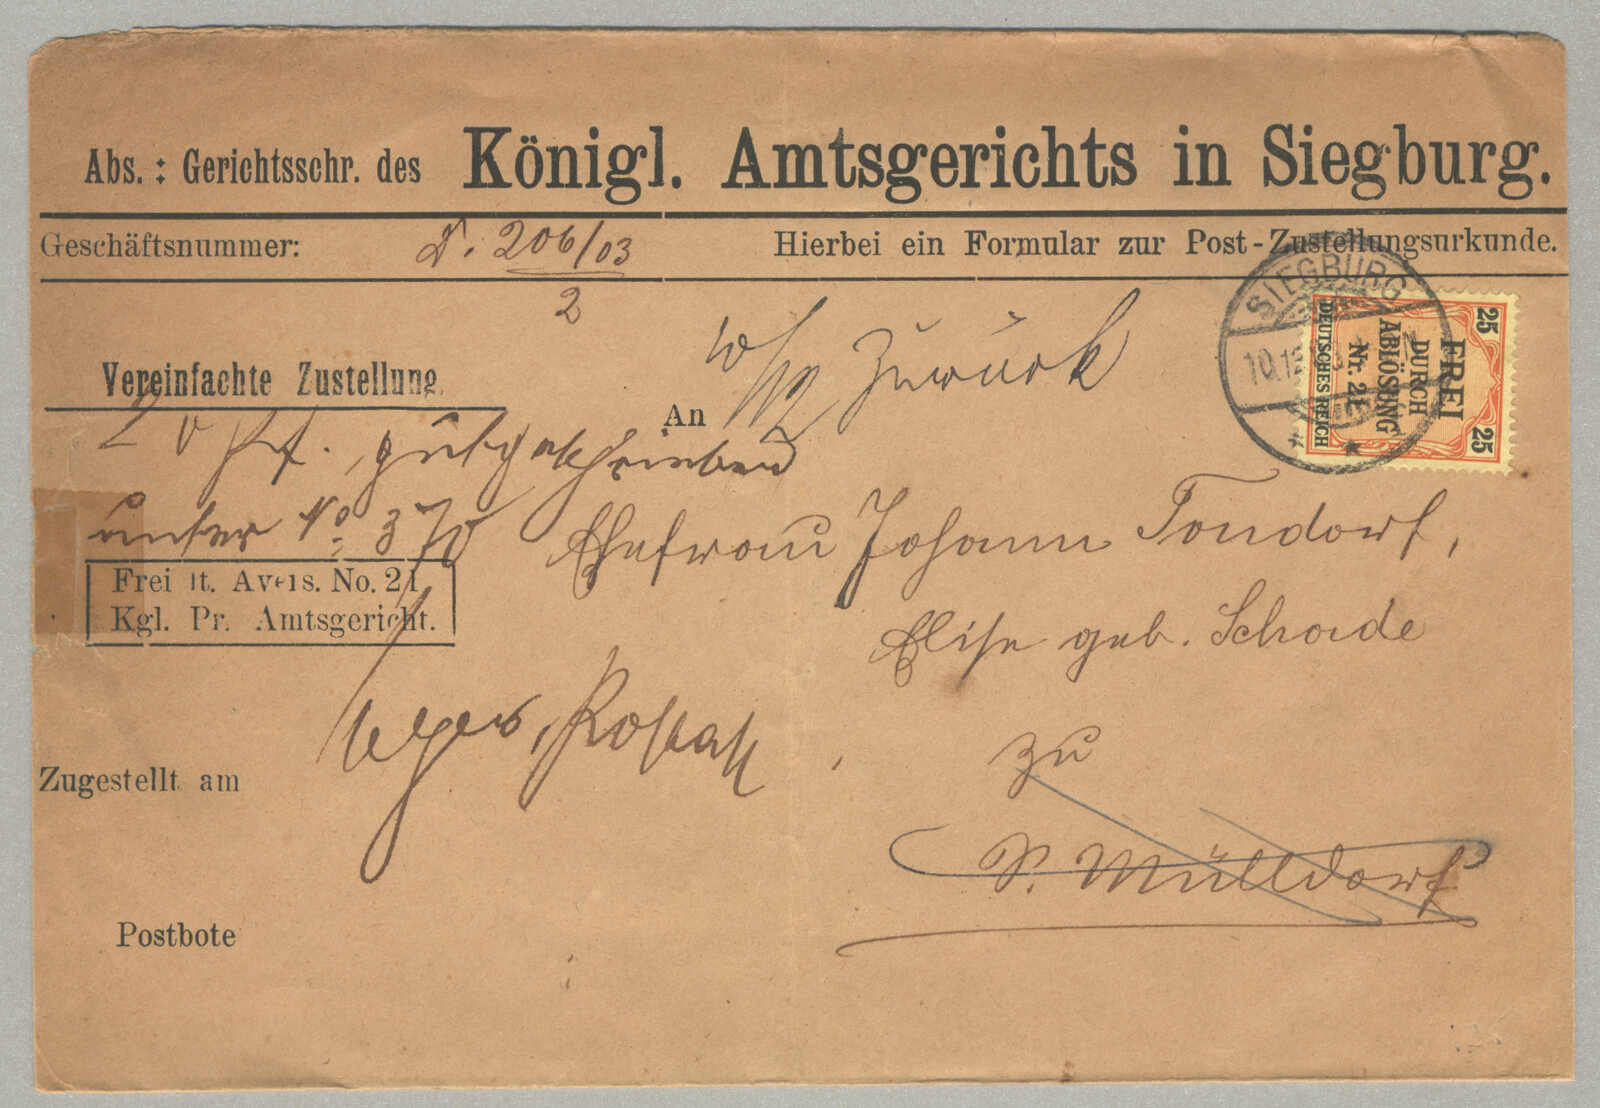 Abs. : Gerichtsschr. des Königl. Amtsgerichts in Siegburg.
Geschäftsnummer: 206/03 Hierbei ein Formular zur Post-Zustellungsurkunde.
2
SIEGBURG
10.12
FREI
DURCH
ABLÖSUNG
Nr. 21
DEUTSCHES REICH
25
25
Vereinfachte Zustellung.
An
Zurück
20 Pf. gutgeschrieben
unter No 370
Ehefrau Johann Tondorf,
Frei lt. Avers. No. 21
Kgl. Pr. Amtsgericht.
Elise geb. Schade
zu
Zugestellt am
S. Mülldorf
Postbote